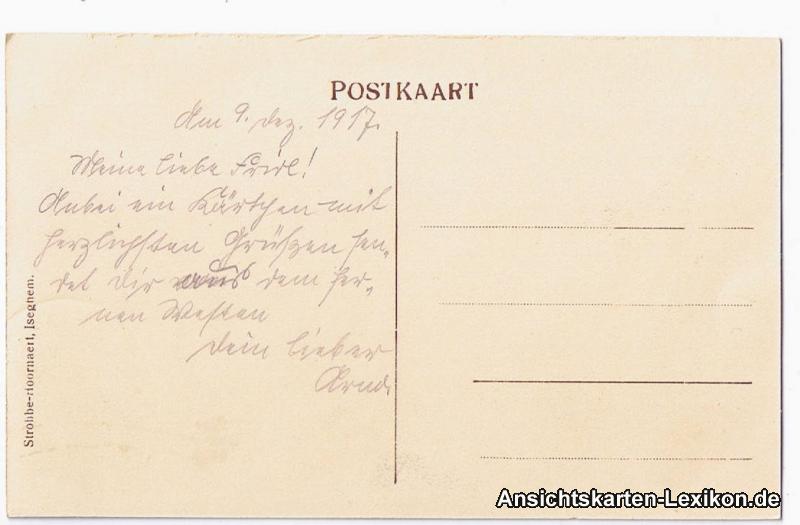 POSTKAART
Am 9. Dez. 1917.
Meine liebe Fridl!
Anbei ein Kärtchen mit
herzlichsten Grüßen sen-
det dir aus dem fer-
nen Westen
dein lieber
Strobbe-Hoornaert, Iseghem.
Ansichtskarten-Lexikon.de